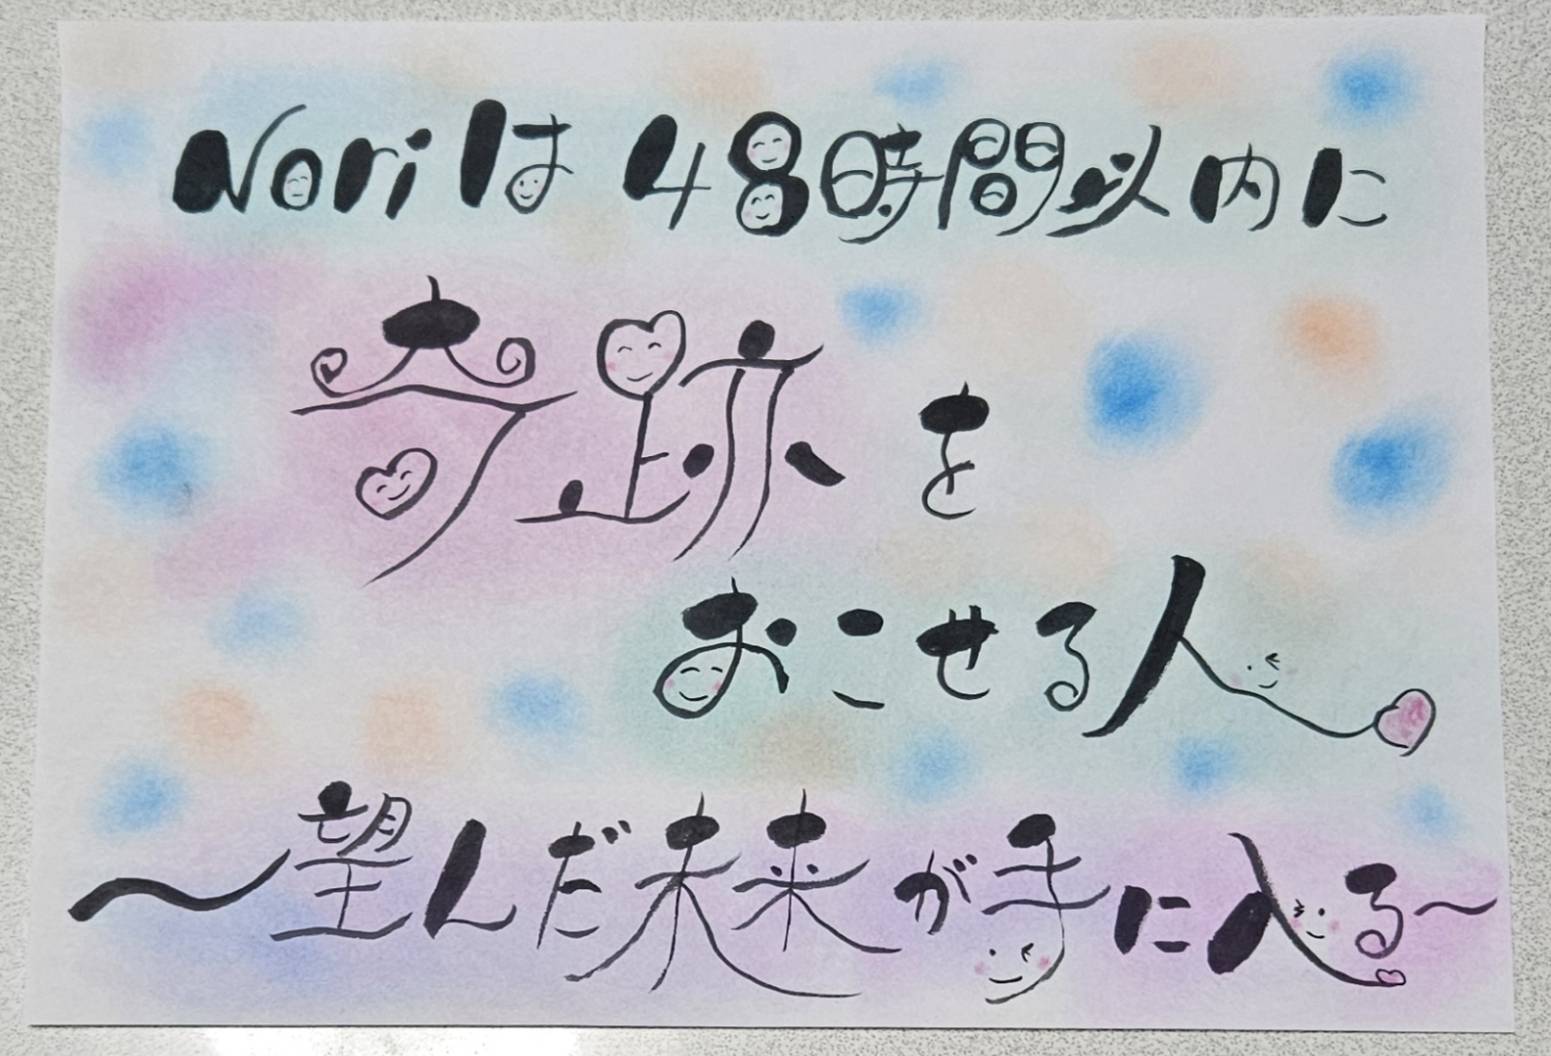 Noriは48時間以内に
奇跡を
おこせる人
〜望んだ未来が手に入る〜